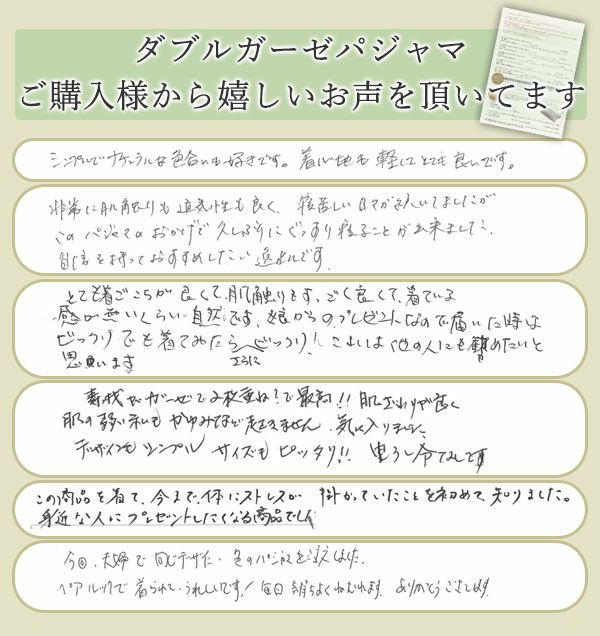 ダブルガーゼパジャマ
ご購入様から嬉しいお声を頂いてます
シンプルでナチュラルな色合いも好きです。着心地も軽くてとても良いです。
非常に肌触りも通気性も良く、寝苦しい日々が続いてましたが
このパジャマのおかげで久しぶりにぐっすり寝ることが出来ました。
自信を持っておすすめしたい逸品です。
とても着ごこちが良くて、肌触りもすごく良くて、着ている
感が無いくらい自然です。娘からのプレゼントなので届いた時は
ビックリでも着てみたらさらにビックリ! これは他の人にも勧めたいと
思います
素材がガーゼで2枚重ねで最高!! 肌ざわりが良く
肌の弱い私もかゆみなど起きません 気に入りました。
デザインもシンプル サイズもピッタリ!!
この商品を着て、今まで、体にストレスが 掛かっていたことを初めて知りました。
身近な人にプレゼントしたくなる商品でした
今回、夫婦で同じデザイン・色のパジャマを注文しました。
ペアルックで着られて、うれしいです! 毎日気持ちよくねむれます。ありがとうございます